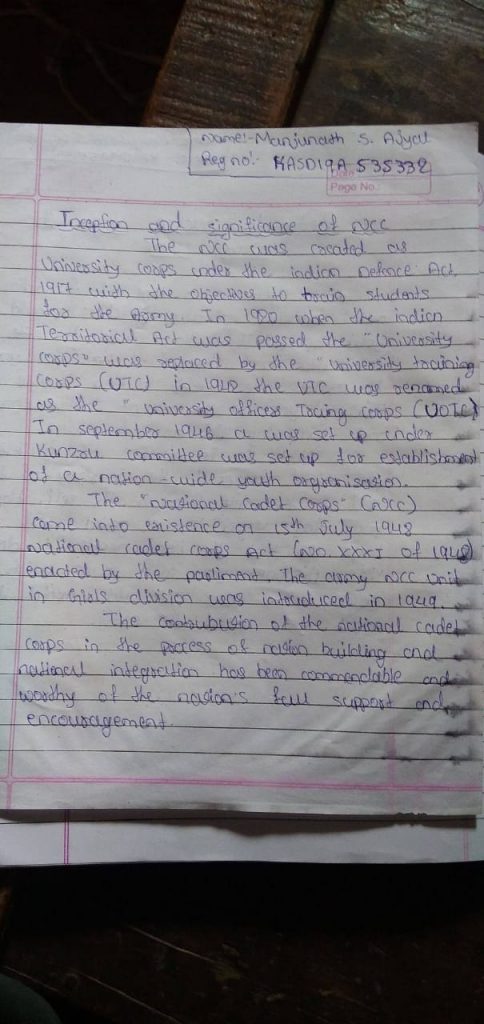 Name:- Manjunath S. Ajyal
Reg no:- KASD19A 535332
Page No.
Inception and significance of NCC
The NCC was created as
University corps under the indian Defence Act,
1917 with the objectives to train students
for the Army. In 1920 when the indian
Territorial Act was passed the "University
corps" was replaced by the "university training
corps (UTC) in 1942 the UTC was renamed
as the "university officers Tracing corps (UOTC)
In september 1946 a was set up under
Kunzru committee was set up for establishment
of a nation-wide youth orgranisation.
The "National Cadet Corps" (NCC)
came into existence on 15th July 1948
National cadet corps Act (NO. XXXI of 1948)
enacted by the parliment. The army NCC Unit
in Girls division was intruduced in 1949.
The contribution of the national cadet
corps in the process of nation building and
national integration has been commendable and
worthy of the nation's full support and
encouragement.